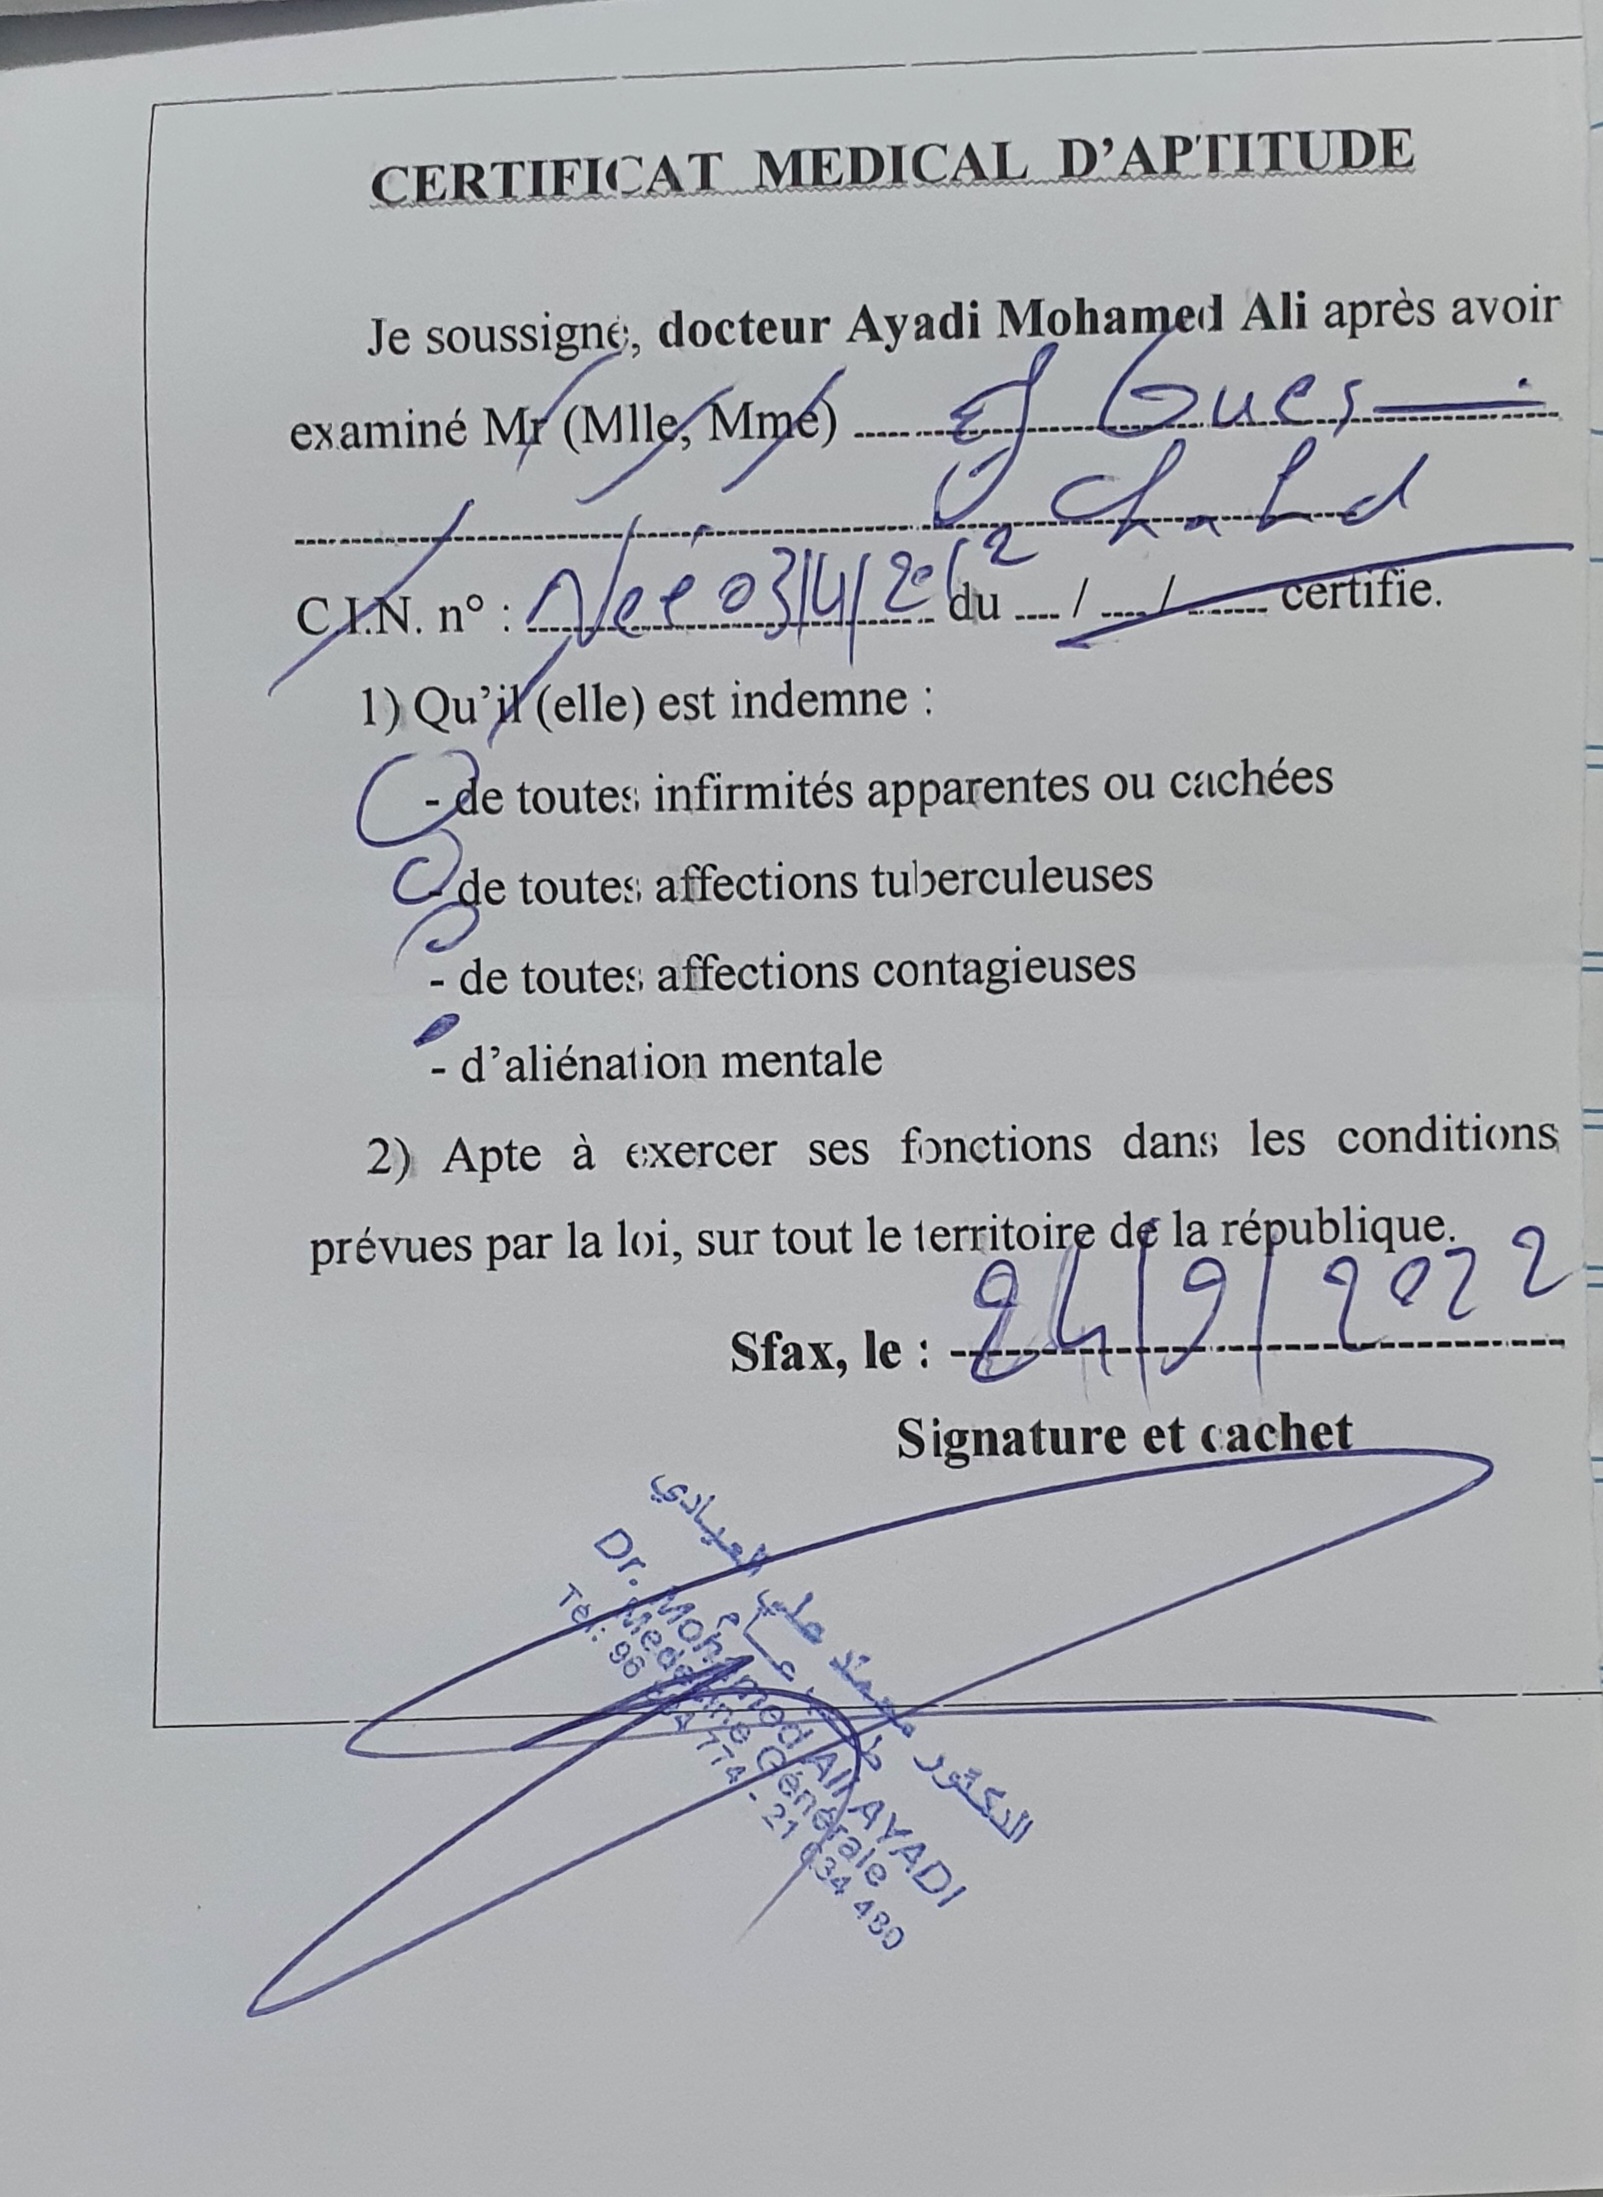 CERTIFICAT MEDICAL D'APTITUDE
Je soussigné, docteur Ayadi Mohamed Ali après avoir
examiné Mr (Mlle, Mme) Gues
Chahd
C.I.N. n° : Née 03/4/2012 du / / certifie.
1) Qu'il (elle) est indemne :
- de toutes infirmités apparentes ou cachées
- de toutes affections tuberculeuses
- de toutes affections contagieuses
- d'aliénation mentale
2) Apte à exercer ses fonctions dans les conditions
prévues par la loi, sur tout le territoire de la république.
Sfax, le : 24/9/2022
Signature et cachet
الدكتور محمد علي العيادي
طب عام
Dr. Mohamed Ali AYADI
Médecine Générale
Tél: 96 774 - 21 634 480